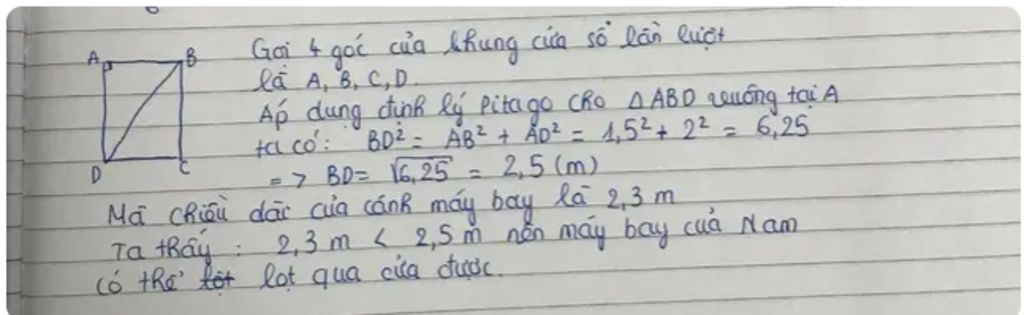 A B
D C
Gọi 4 góc của khung cửa sổ lần lượt
là A, B, C, D
Áp dụng định lý Pitago cho △ABD vuông tại A
ta có: BD² = AB² + AD² = 1,5² + 2² = 6,25
=> BD = √6,25 = 2,5 (m)
Mà chiều dài của cánh máy bay là 2,3 m
Ta thấy : 2,3 m < 2,5 m nên máy bay của Nam
có thể lọt qua cửa được.